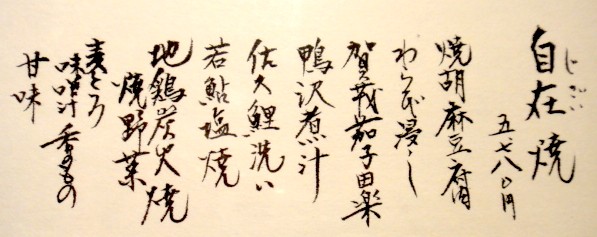 自在焼
じざい
五七八〇円
焼胡麻豆腐
わらび浸し
賀茂茄子田楽
鴨沢煮汁
佐久鯉洗い
若鮎塩焼
地鶏炭火焼
焼野菜
麦とろ
味噌汁 香のもの
甘味